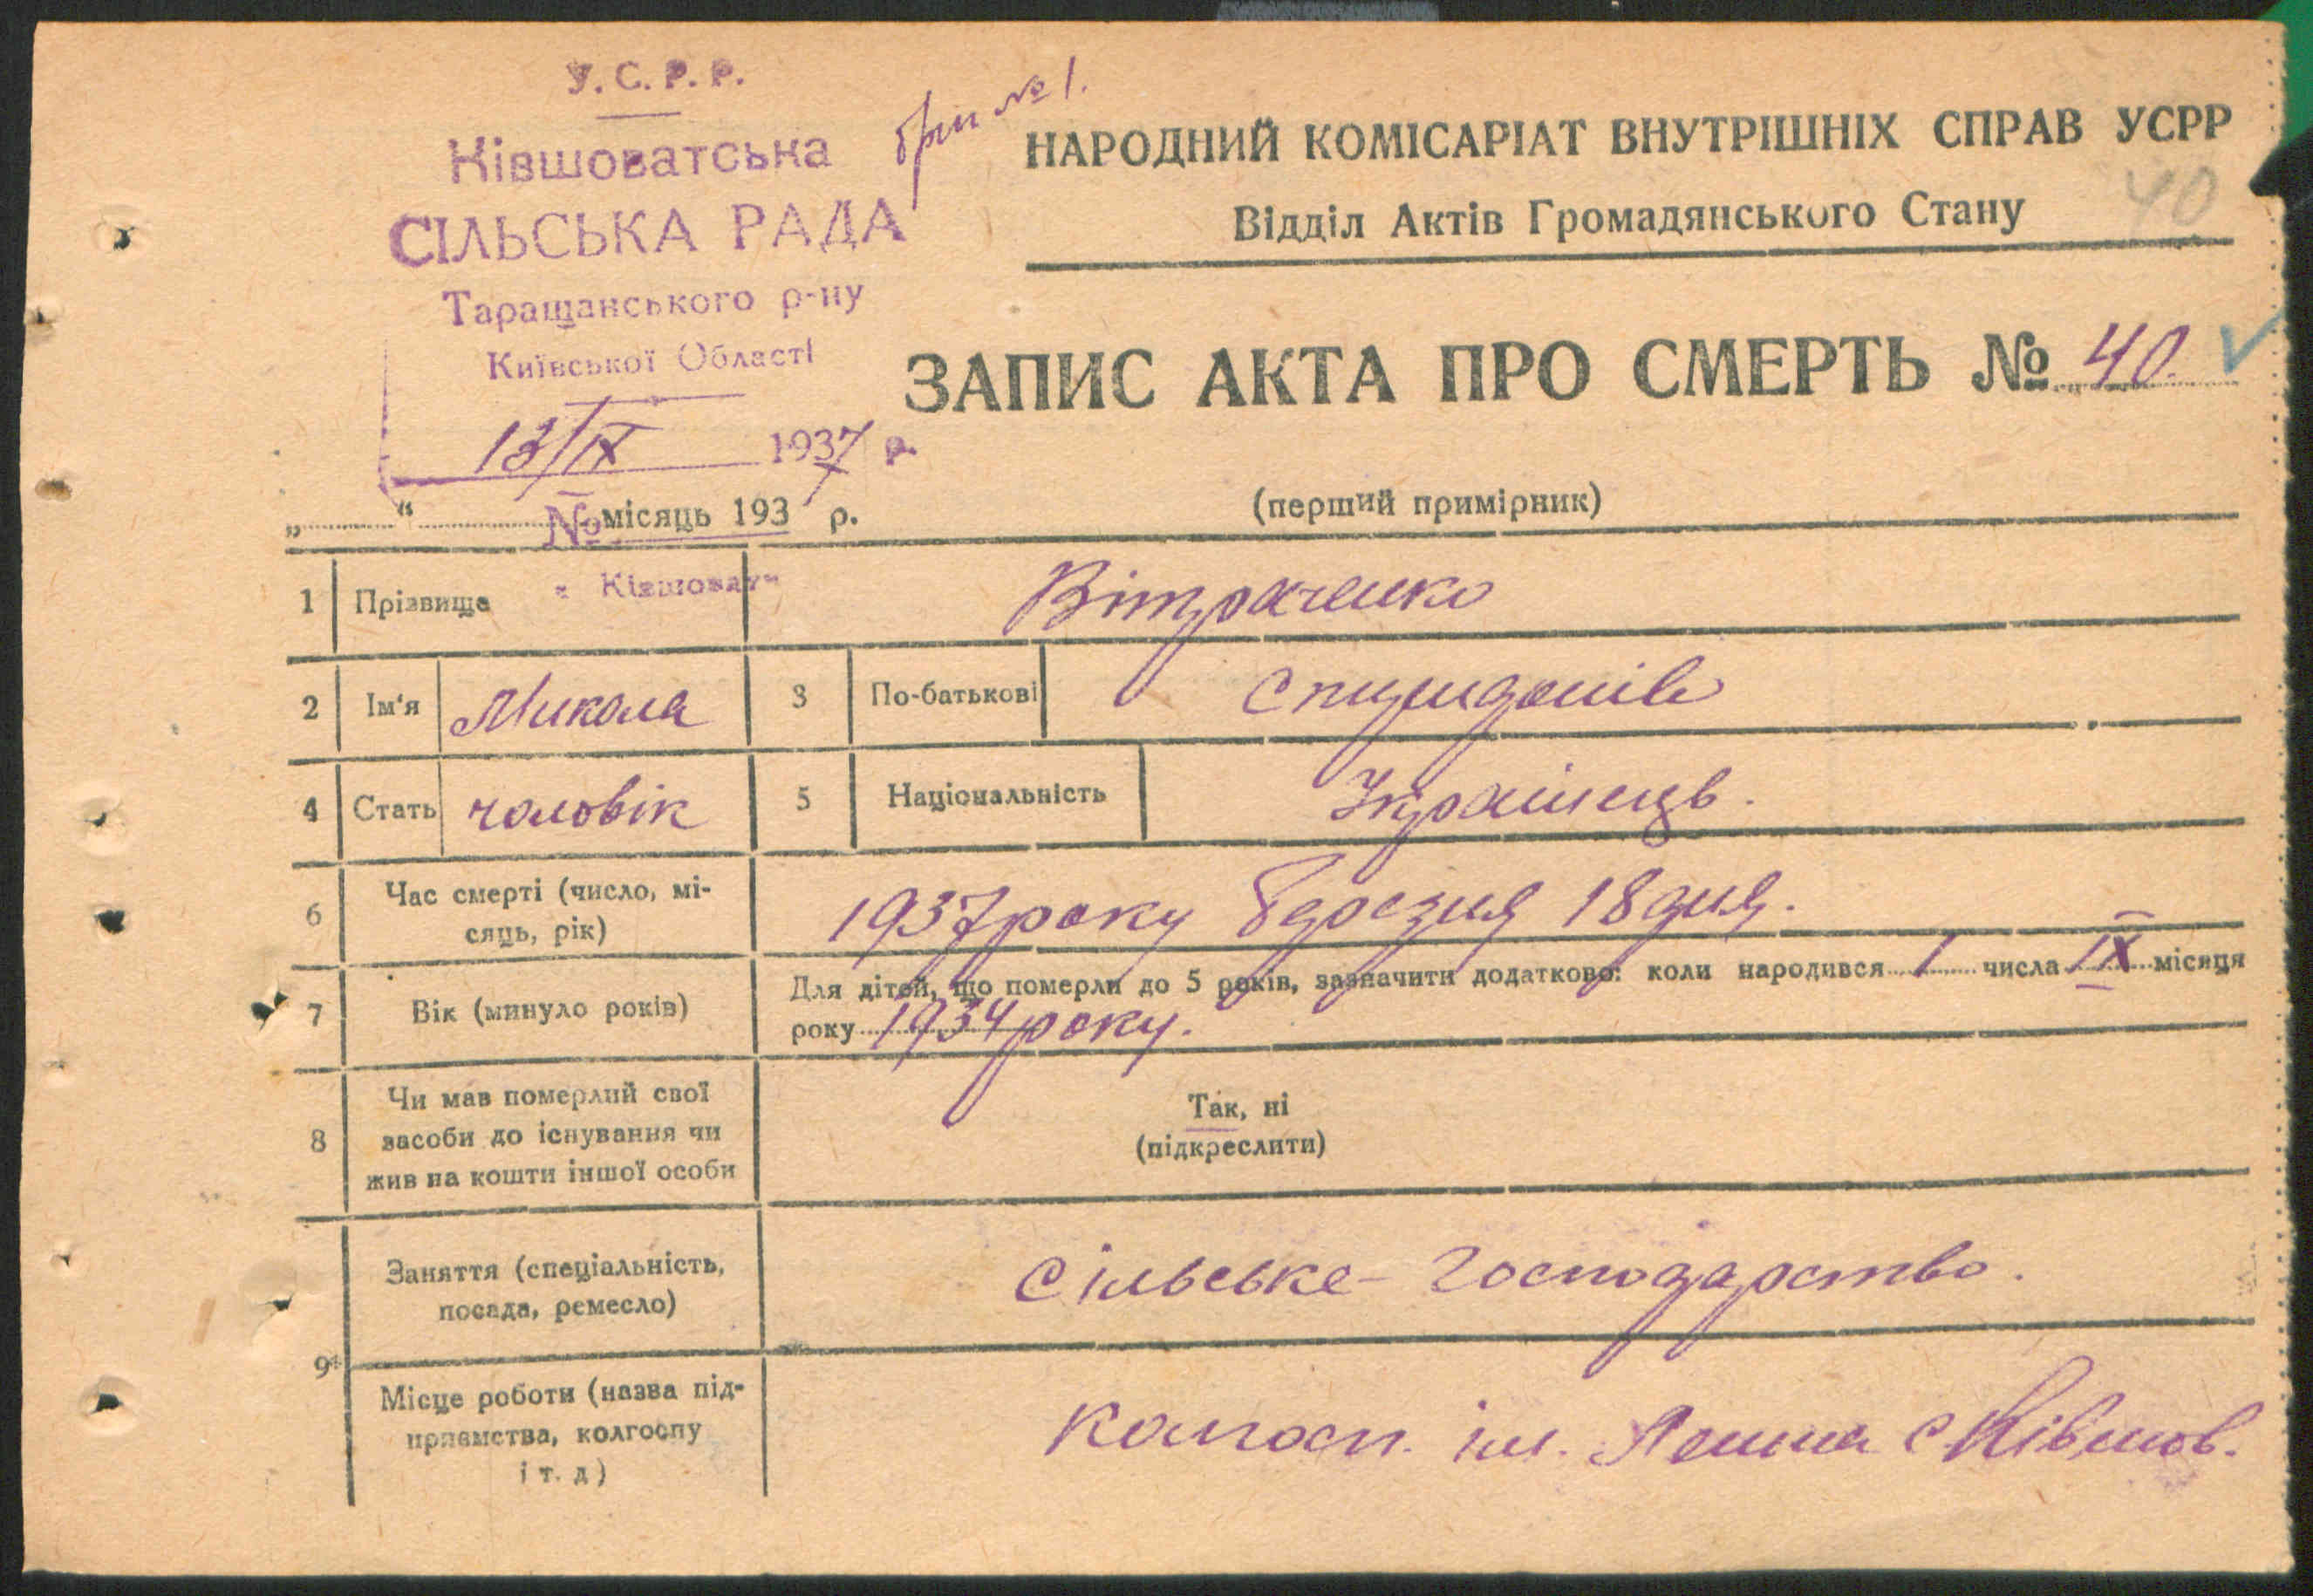 У. С. Р. Р.
Ківшоватська
СІЛЬСЬКА РАДА
Таращанського р-ну
Київської Області
13/IX 1937 р.
№
с. Ківшовата
бриг №1.
НАРОДНИЙ КОМІСАРІАТ ВНУТРІШНІХ СПРАВ УСРР
Відділ Актів Громадянського Стану
40
ЗАПИС АКТА ПРО СМЕРТЬ № 40.
„ “ місяць 193 р.
(перший примірник)
1 Прізвище Вітраченко
2 Ім'я Микола 3 По-батькові Спиридонів
4 Стать чоловік 5 Національність Українець.
6 Час смерті (число, мі-
сяць, рік) 1937 року березня 18 дня.
7 Вік (минуло років) Для дітей, що померли до 5 років, зазначити додатково: коли народився 1 числа IX місяця
року 1934 року.
8 Чи мав померлий свої
засоби до існування чи
жив на кошти іншої особи
Так, ні
(підкреслити)
9 Заняття (спеціальність,
посада, ремесло) Сільське-Господарство.
Місце роботи (назва під-
приємства, колгоспу
і т. д) Колгосп. ім. Леніна с. Ківшов.